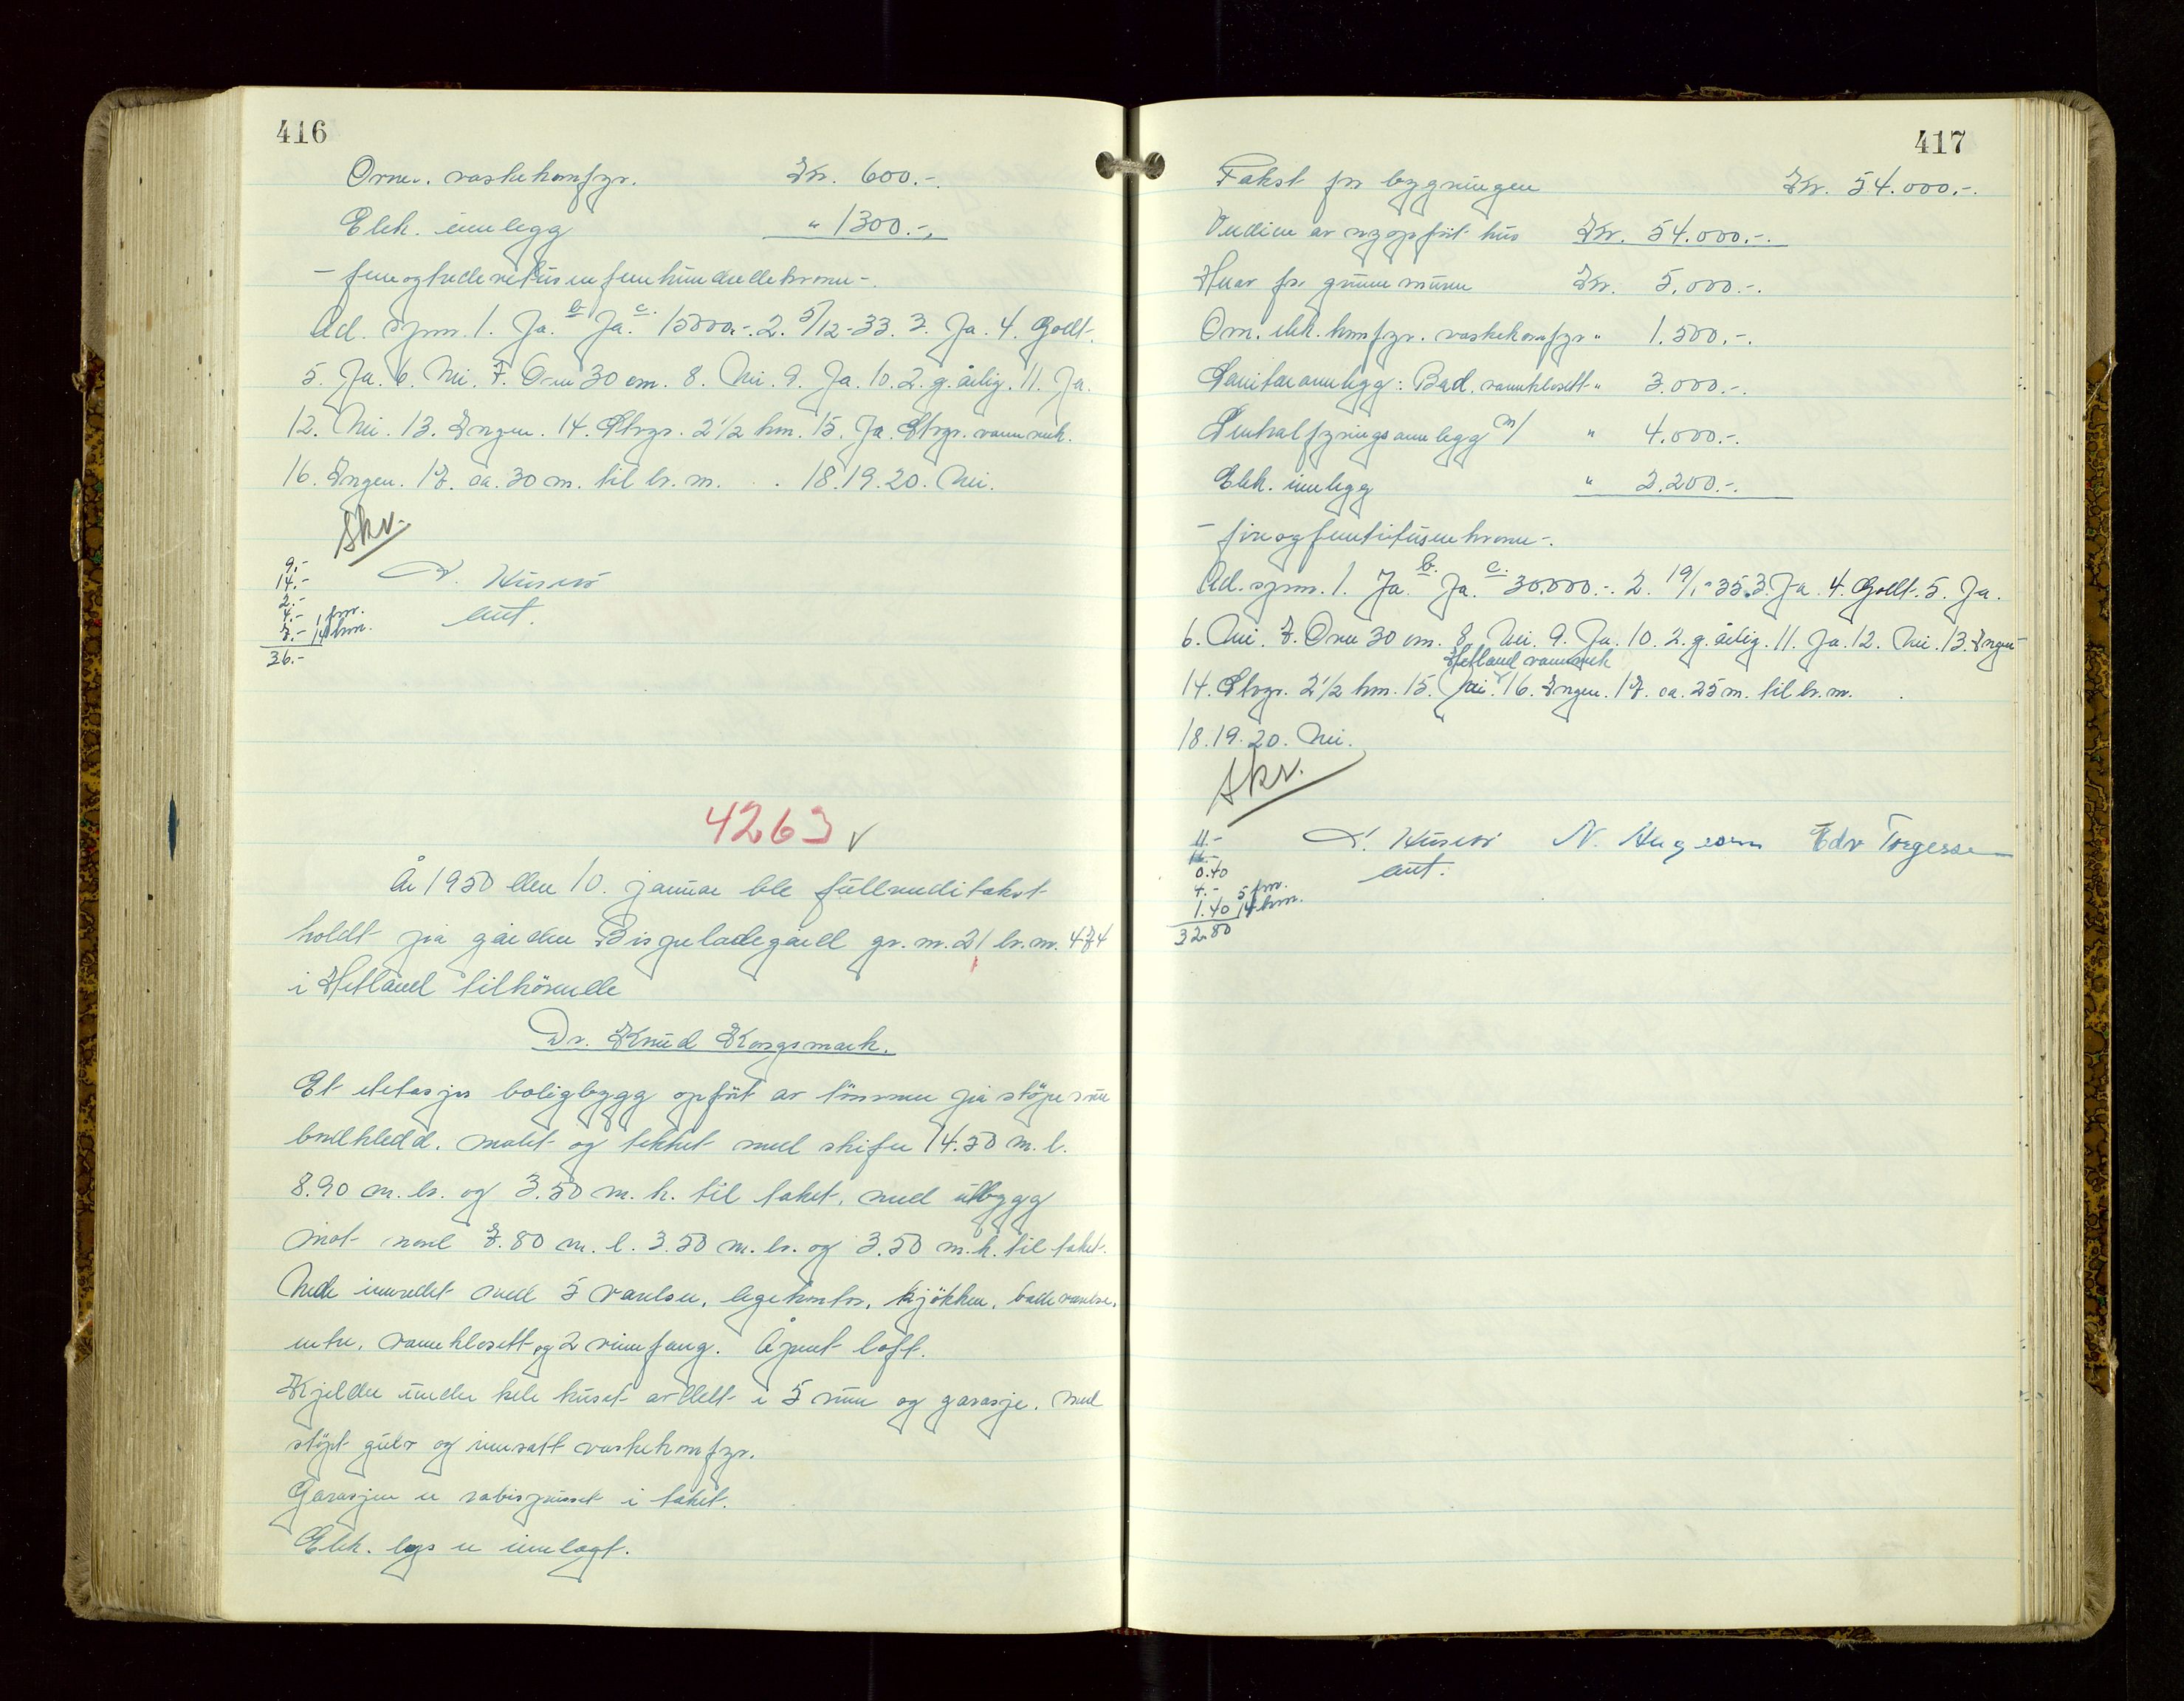 416
Ovner, vaskekomfyr. Kr. 600.-.
Elek. innlegg " 1300.-.
- femogtredevetusenfemhundredekroner -.
Ad. spm. 1. Ja. b. Ja. c. 15000.-. 2. 5/12-33. 3. Ja. 4. Godt.
5. Ja. 6. Nei. 7. Over 30 cm. 8. Nei. 9. Ja. 10. 2. g. årlig. 11. Ja.
12. Nei. 13. Ingen. 14. Stvgr. 2 1/2 km. 15. Ja. Stvgr. vannverk.
16. Ingen. 17. ca. 30 m. til br. m. . 18. 19. 20. Nei.
Skv.
9.-
14.-
2.-
4.- 1 frv.
7.- 14 km.
36.-
Husebø
lent.
4263 v
År 1950 den 10. januar ble fullverditakst
holdt på gården Bispeladegård gr. nr. 21 br. nr. 474
i Hetland tilhörende
Dr. Knud Korsgsmark.
Et etetasjes boligbygg opfört av tömmer på stöpemur
bordkledd, malet og tekket med skifer 14.50 m. l.
8.90 m. br. og 3.50 m. h. til taket, med utbygg
mot nord 7.80 m. l. 3.50 m. br. og 3.50 m. h. til taket.
Nede innredet med 5 værelser, legekontor, kjökken, badeværelse,
entre, vannklosett og 2 vinnfang. Åpent loft.
Kjelder under hele huset avdelt i 5 rum og garasje, med
stöpt gulv og innsatt vaskekomfyr.
Garasjen er rabispusset i taket.
Elek. lys er innlagt.
417
Takst for bygningen Kr. 54.000.-.
Verdien av nyopfört hus Kr. 54.000.-.
Herav for grunnmuren Kr. 5.000.-.
Ovn. elek. komfyr. vaskekomfyr " 1.500.-.
Sanitæranlegg: Bad, vannklosett " 3.000.-.
Sentralfyringsanlegg m/ " 4.000.-.
Elek. innlegg " 2.200.-.
- fireogfemtitusenkroner -.
Ad. spm. 1. Ja. b. Ja. c. 30.000.-. 2. 19/1-35. 3. Ja. 4. Godt. 5. Ja.
6. Nei. 7. Over 30 cm. 8. Nei. 9. Ja. 10. 2. g. årlig. 11. Ja. 12. Nei. 13. Ingen
Hetland vannverk
14. Stvgr. 2 1/2 km. 15. Ja. 16. Ingen. 17. ca. 25 m. til br. m. .
18. 19. 20. Nei.
Skv.
11.-
16.-
0.40
4.- 5 frv.
1.40 14 km.
32.80
Husebø N. Haugesen Edv Torgersen
lent.